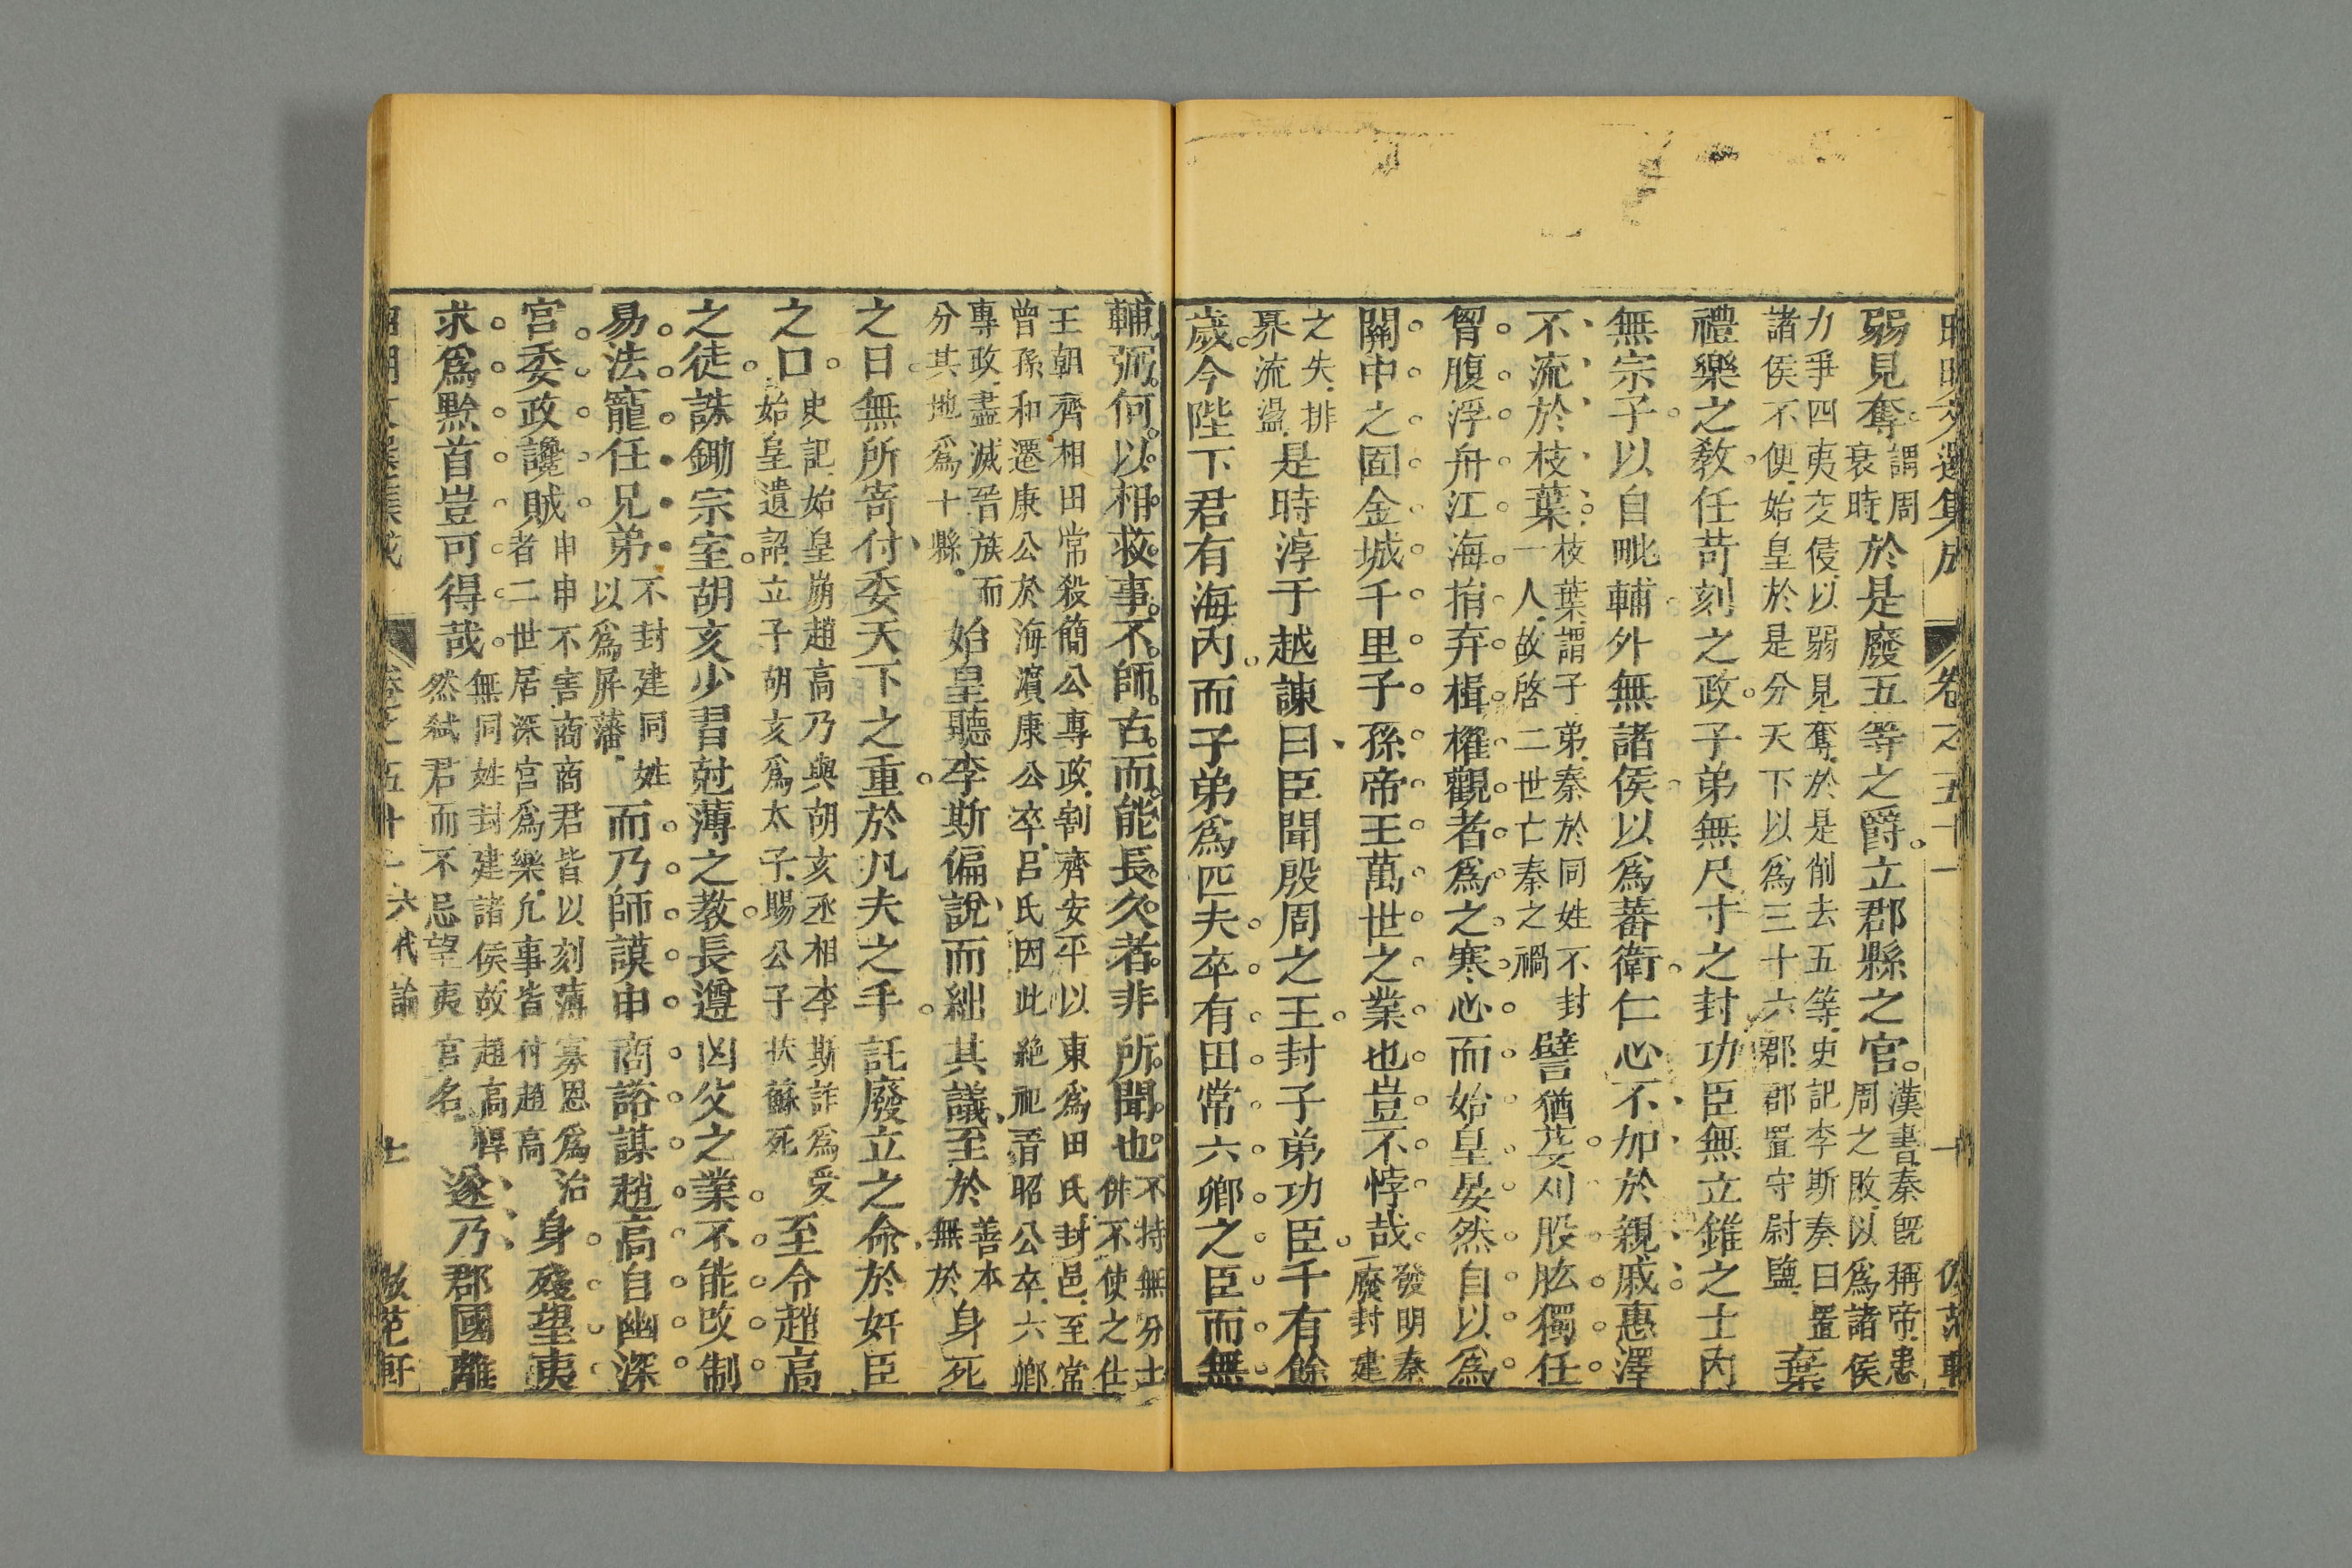 昭明文選集成 卷之五十一 十 倣范軒
弱見奪謂周衰時於是廢五等之爵立郡縣之官漢書秦旣稱帝患周之敗以爲諸侯
力爭四夷交侵以弱見奪於是削去五等史記李斯奏曰置諸侯不便始皇於是分天下以爲三十六郡郡置守尉監棄
禮樂之教任苛刻之政子弟無尺寸之封功臣無立錐之士內
無宗子以自毗輔外無諸侯以爲蕃衛仁心不加於親戚惠澤
不流於枝葉枝葉謂子弟秦於同姓不封一人故啓二世亡秦之禍譬猶芟刈股肱獨任
胷腹浮舟江海捐弃楫櫂觀者爲之寒心而始皇晏然自以爲
關中之固金城千里子孫帝王萬世之業也豈不悖哉發明秦廢封建
之失排界流盪是時淳于越諫曰臣聞殷周之王封子弟功臣千有餘
歲今陛下君有海內而子弟爲匹夫卒有田常六鄉之臣而無
輔弼何以相救事不師古而能長久者非所聞也不特無分土併不使之仕
王朝齊相田常殺簡公專政割齊安平以東爲田氏封邑至常曾孫和遷康公於海濵康公卒呂氏因此絶祀晉昭公卒六鄉
專政盡滅晉族而分其地爲十縣始皇聽李斯偏說而絀其議至於善本無於身死
之日無所寄付委天下之重於凡夫之手託廢立之命於奸臣
之口史記始皇崩趙高乃與胡亥丞相李斯詐爲受始皇遺詔立子胡亥爲太子賜公子扶蘇死至令趙高
之徒誅鋤宗室胡亥少習尅薄之教長遵凶父之業不能改制
易法寵任兄弟不封建同姓以爲屏藩而乃師謨申商諮謀趙高自幽深
宮委政讒賊申申不害商商君皆以刻薄寡恩爲治者二世居深宮爲樂凢事皆付趙高身殘望夷
求爲黔首豈可得哉無同姓封建諸侯故趙高悍然弑君而不忌望夷宮名遂乃郡國離
卷之五十一 六代論 士 倣范軒